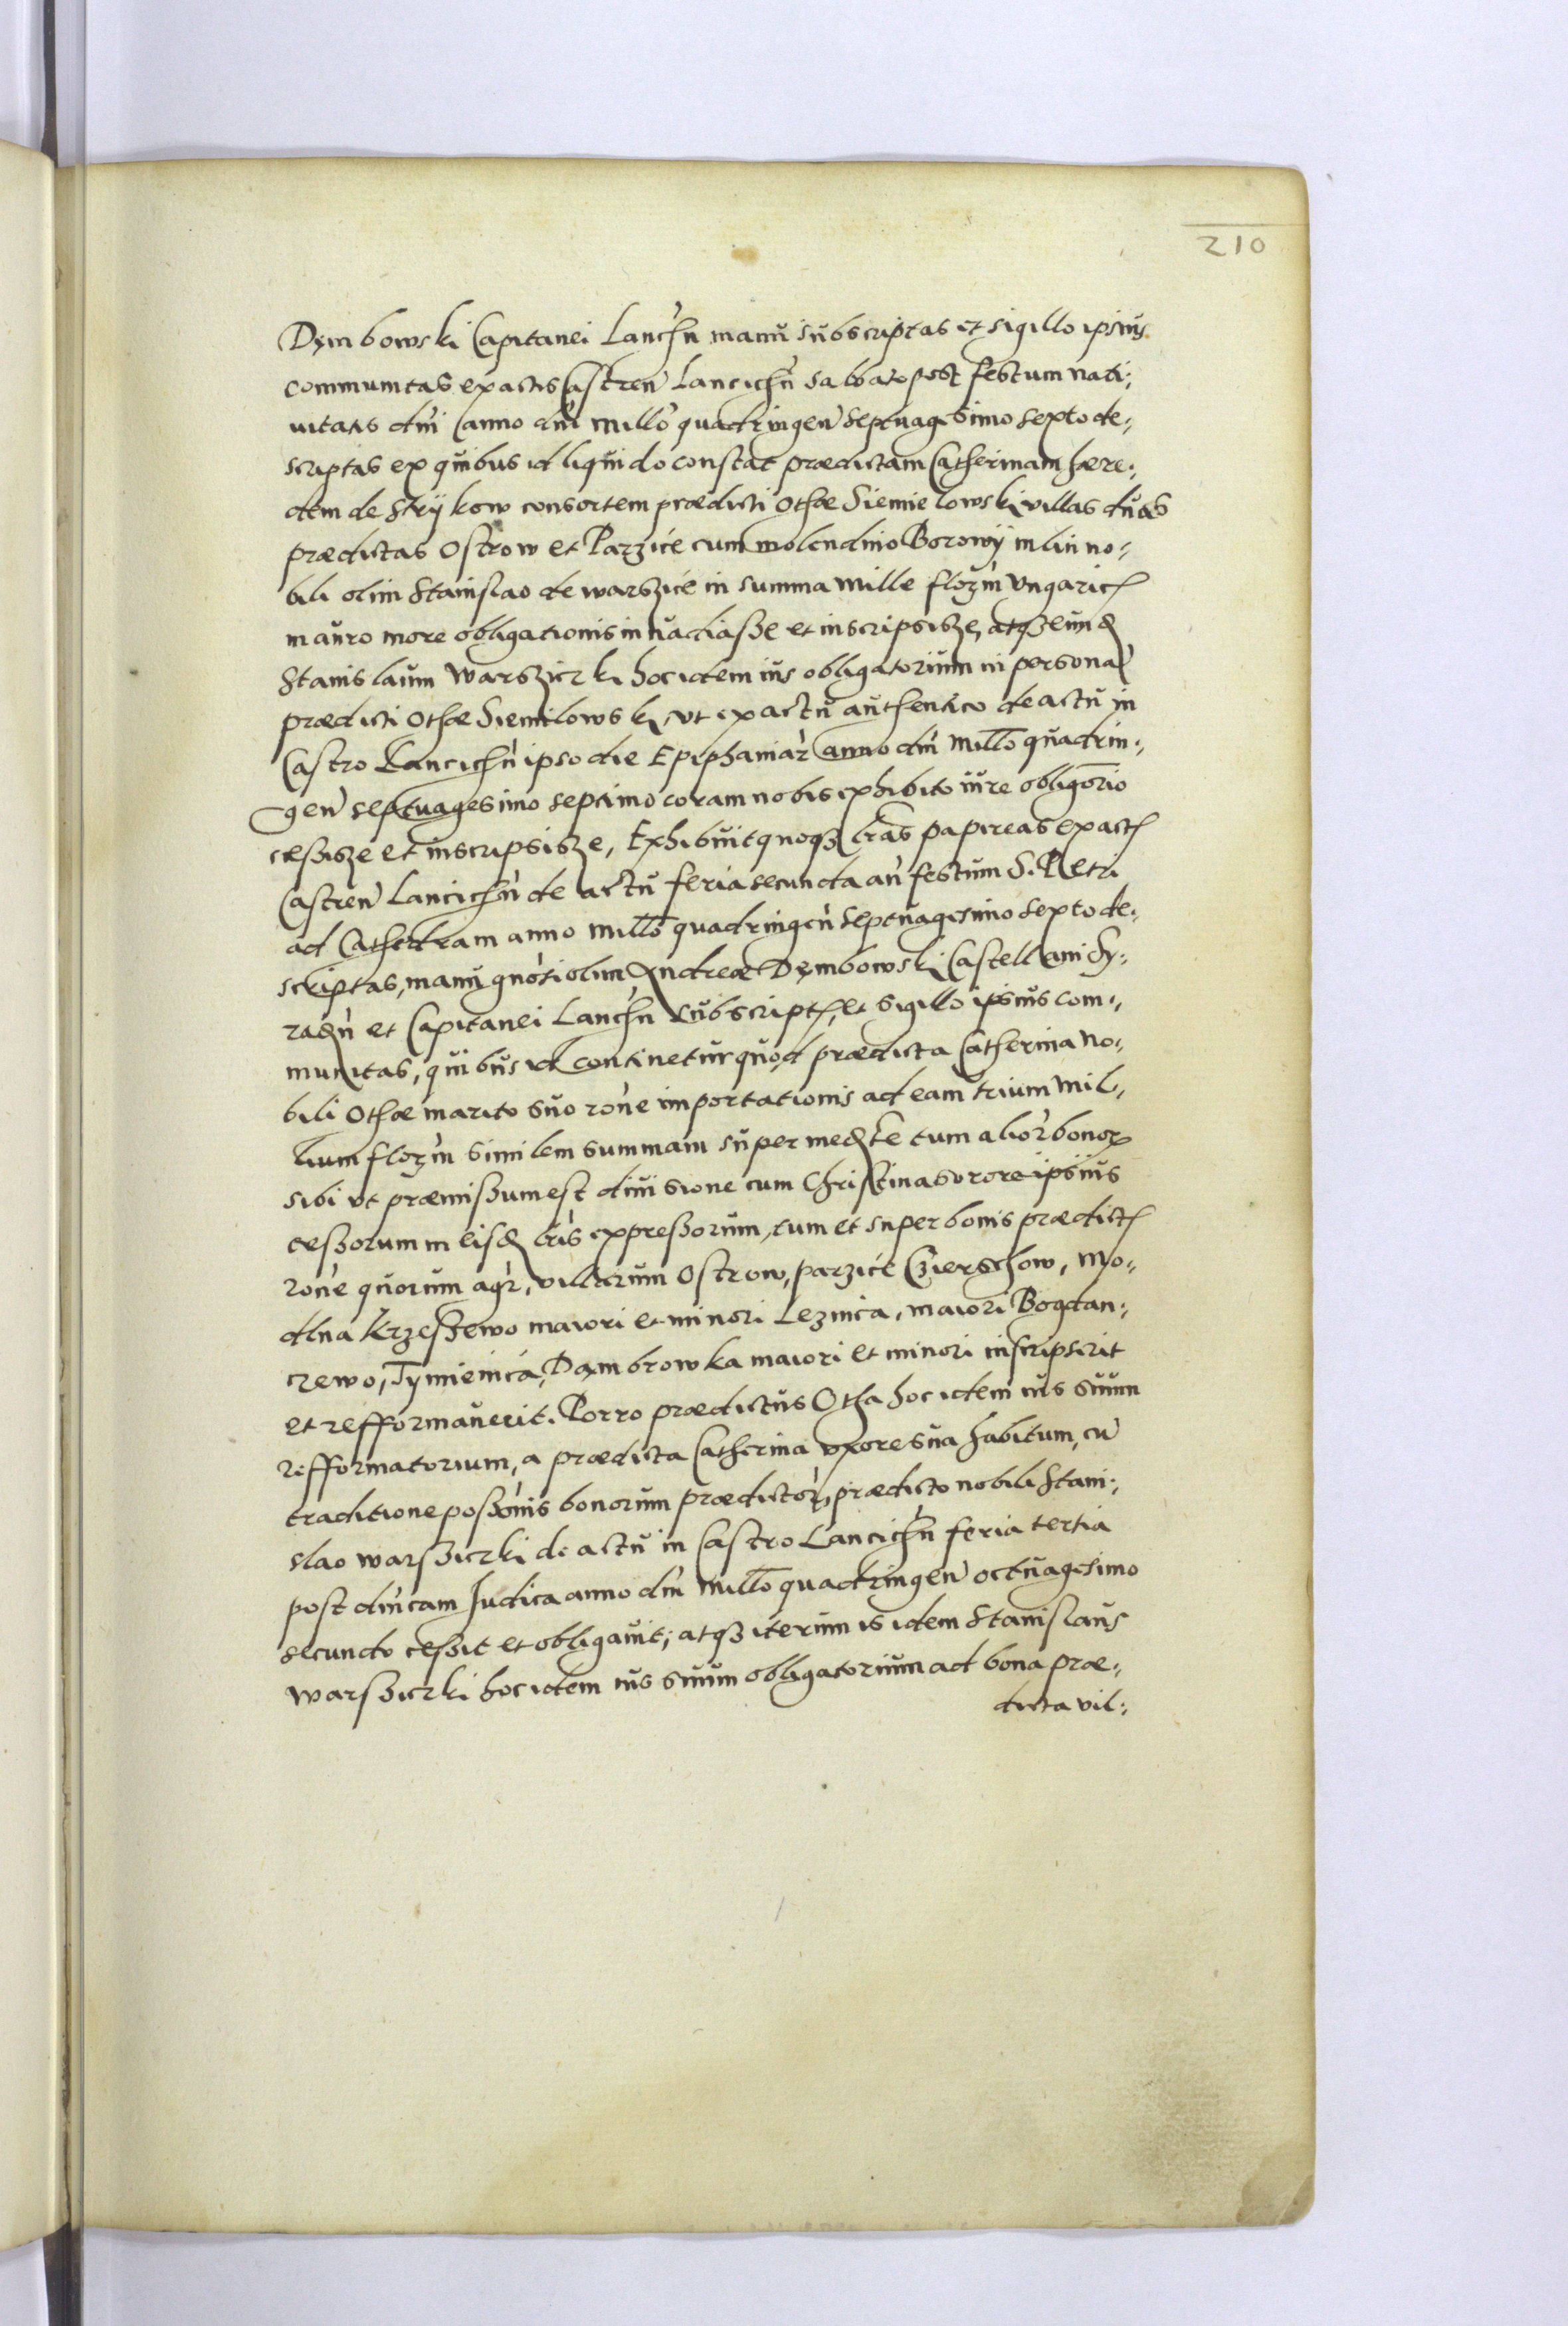 210
Dęmbowski Capitanei Lancẖn manu subscriptas et sigillo ipsius
communitas ex actis Castren̄ Lancicħn sabbato post festum nati:,
uitatis dn̄i anno dn̄i millo͞ quadringen̄ septuagesimo sexto de:,
scriptas ex quibus id liquido constat prædictam Catherinam hære:,
dem de Strÿkow consortem prædicti Othæ Siemielowski villas duas
prædictas Ostrow et Parzice cum molendino Borowÿ mlin no:,
bili olim Stanislao de warszice in summa mille florz̄n vngaric̄
in auro more obligationis inuadiasse et inscripsisse, atqȝ eund̄
Stanislaum Warszicki hoc idem ius obligatorium in personā
prædicti Othæ Siemilowski, vt ex actu authentico de actu in
Castro Lancicħn ipso die Epiphaniar̄ anno dn̄i millo͞ quadrin:,
gen̄ septuagesimo septimo coram nobis exhibito iure obligor̄io
cessisse et inscripsisse, Exhibuit quoqȝ lr̄as papireas ex act̄
Castren̄ Lancicħn de actu feria secunda an̄ festum S. Petri
ad Cathedram anno millo͞ quadringen̄ septuagesimo sexto de:,
scriptas, manu gn̄osi olim Andreæ Dęmbowski Castellani Sy:,
radn̄ et Capitanei Lancẖn subscript̄, et sigillo ipsius com:,
munitas, quibus id continetur quod prædicta Catherina no:,
bili Othæ marito suo ron̄e importationis ad eam trium mil:,
lium florz̄n similem summam super med̄te tum alior̄ bonorꝝ
sibi vt præmissum est diuisione cum Christina sorore ipsius
cessorum in eisd̄ lr̄is expressorum, tum et super bonis prædict̄
ron̄e quorum agr̄, villarum Ostrow, parzice Czierschow, Mo:,
dlna Krzeszewo maiori et minori Leznica, maiori Bogdan:,
czewo, Tymienica, Dąmbrowka maiori et minori inscripserit
et refformauerit. Porro prædictus Otha hoc idem ius suum
refformatorium, a prædicta Catherina vxore sua habitum, cū
traditione poss̄onis bonorum prædictor̄, prædicto nobili Stani:,
slao warsziczki de actu in Castro Lancicħn feria tertia
post dn̄icam Iudica anno dn̄i millo͞ quadringen̄ octuagesimo
secundo cessit et obligauit; atqȝ iterum is idem Stanislaus
warsziczki hoc idem ius suum obligatorium ad bona præ:,
dicta vil:,